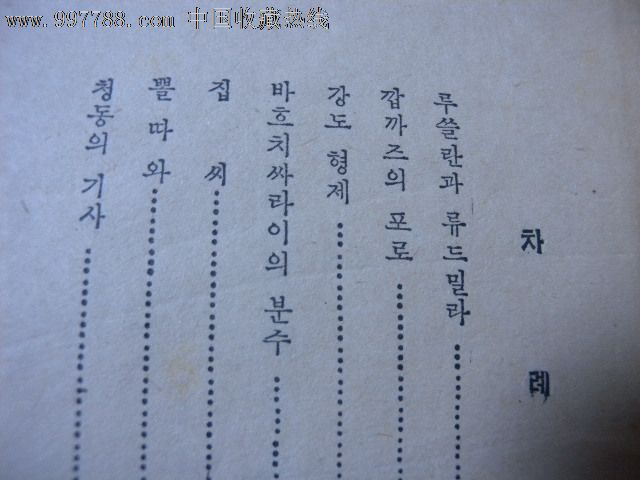 www.997788.com 中国收藏热线
차 례
루쓸란과 류드밀라
깝까즈의 포로
강도 형제
바흐치싸라이의 분수
집 씨
뽈따와
청동의 기사